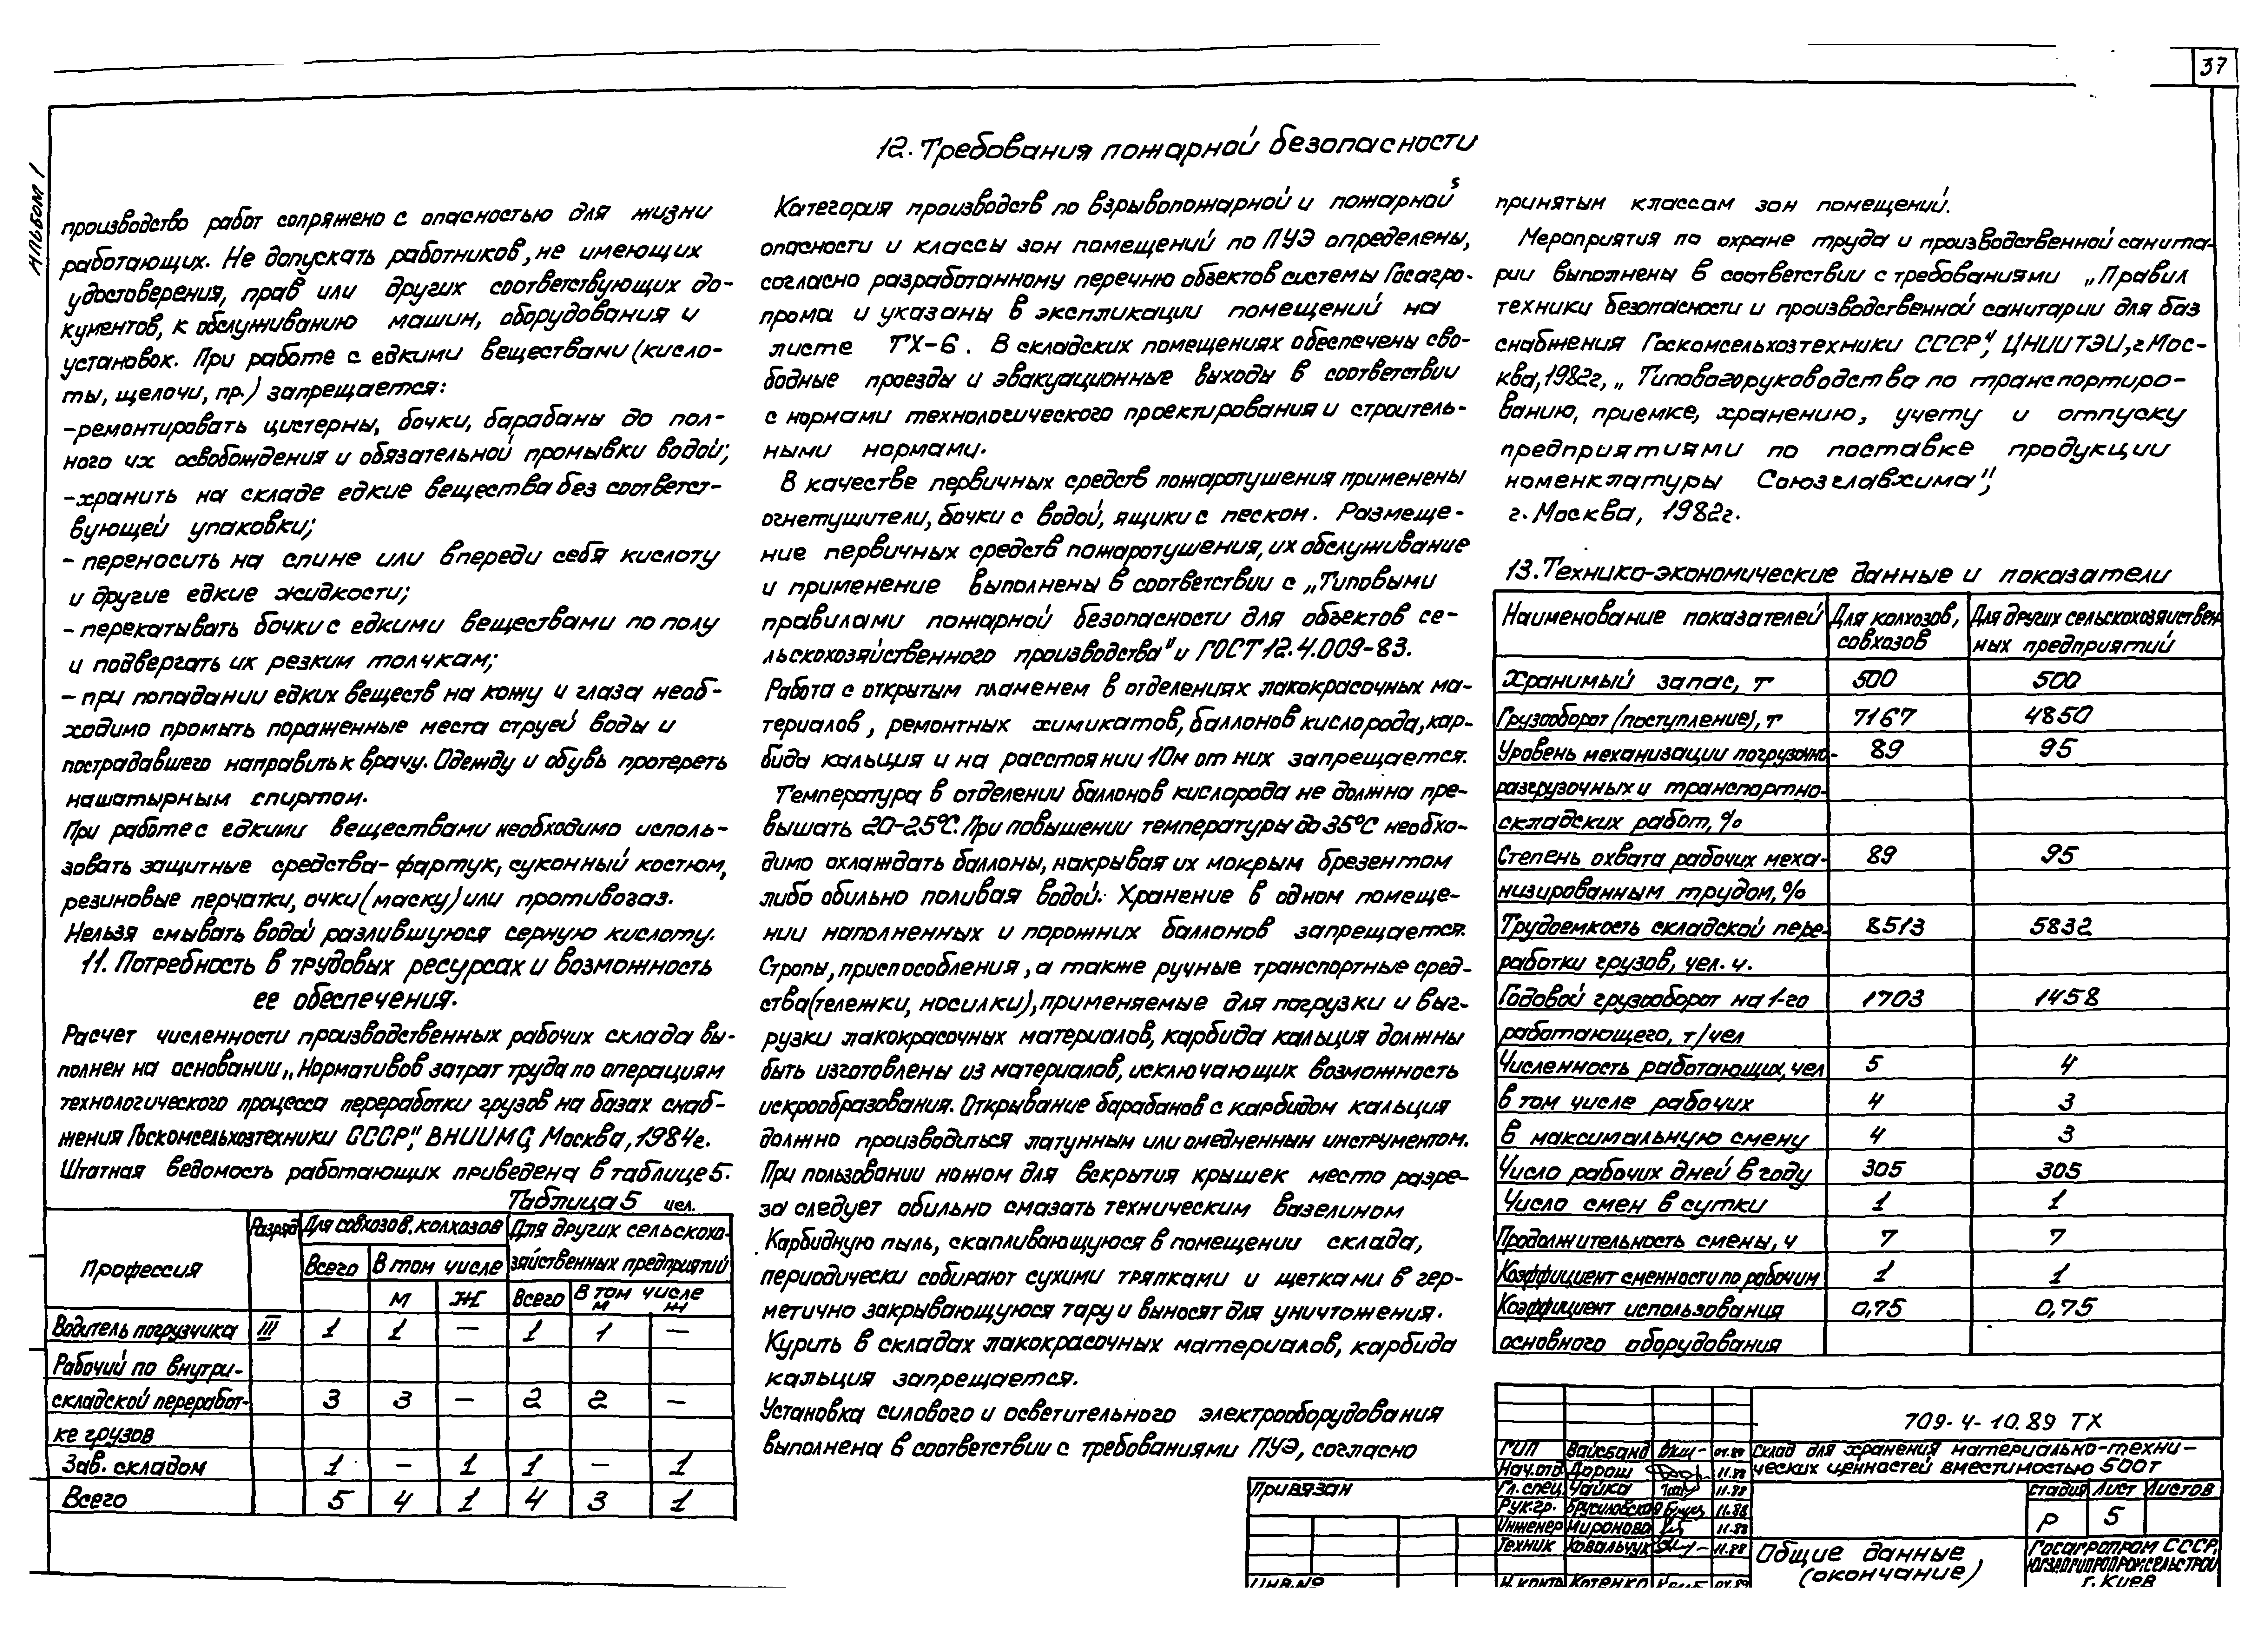 37
Альбом 1
производство работ сопряжено с опасностью для жизни
работающих. Не допускать работников, не имеющих
удостоверения, прав или других соответствующих до-
кументов, к обслуживанию машин, оборудования и
установок. При работе с едкими веществами (кисло-
ты, щелочи, пр.) запрещается:
-ремонтировать цистерны, бочки, барабаны до пол-
ного их освобождения и обязательной промывки водой;
-хранить на складе едкие вещества без соответст-
вующей упаковки;
- переносить на спине или впереди себя кислоту
и другие едкие жидкости;
- перекатывать бочки с едкими веществами по полу
и подвергать их резким толчкам;
- при попадании едких веществ на кожу и глаза необ-
ходимо промыть пораженные места струей воды и
пострадавшего направить к врачу. Одежду и обувь протереть
нашатырным спиртом.
При работе с едкими веществами необходимо исполь-
зовать защитные средства- фартук, суконный костюм,
резиновые перчатки, очки (маску) или противогаз.
Нельзя смывать водой разлившуюся серную кислоту.
11. Потребность в трудовых ресурсах и возможность
ее обеспечения.
Расчет численности производственных рабочих склада вы-
полнен на основании „Нормативов затрат труда по операциям
технологического процесса переработки грузов на базах снаб-
жения Госкомсельхозтехники СССР", ВНИИМС, Москва, 1984г.
Штатная ведомость работающих приведена в таблице 5.
Таблица 5 чел.
Профессия Разряд Для совхозов, колхозов Для других сельскохо-
зяйственных предприятий
Всего В том числе
М Ж Всего В том числе
м ж
Водитель погрузчика III 1 1 — 1 1 —
Рабочий по внутри-
складской переработ- 3 3 — 2 2 —
ке грузов
Зав. складом 1 — 1 1 — 1
Всего 5 4 1 4 3 1
12. Требования пожарной безопасности
Категория производств по взрывопожарной и пожарной
опасности и классы зон помещений по ПУЭ определены,
согласно разработанному перечню объектов системы Госагро-
прома и указаны в экспликации помещений на
листе ТХ-6. В складских помещениях обеспечены сво-
бодные проезды и эвакуационные выходы в соответствии
с нормами технологического проектирования и строитель-
ными нормами.
В качестве первичных средств пожаротушения применены
огнетушители, бочки с водой, ящики с песком. Размеще-
ние первичных средств пожаротушения, их обслуживание
и применение выполнены в соответствии с „Типовыми
правилами пожарной безопасности для объектов се-
льскохозяйственного производства" и ГОСТ 12.4.009-83.
Работа с открытым пламенем в отделениях лакокрасочных ма-
териалов, ремонтных химикатов, баллонов кислорода, кар-
бида кальция и на расстоянии 10м от них запрещается.
Температура в отделении баллонов кислорода не должна пре-
вышать 20-25°С. При повышении температуры до 35°С необхо-
димо охлаждать баллоны, накрывая их мокрым брезентом
либо обильно поливая водой. Хранение в одном помеще-
нии наполненных и порожних баллонов запрещается.
Стропы, приспособления, а также ручные транспортные сред-
ства (тележки, носилки), применяемые для погрузки и выг-
рузки лакокрасочных материалов, карбида кальция должны
быть изготовлены из материалов, исключающих возможность
искрообразования. Открывание барабанов с карбидом кальция
должно производиться латунным или омедненным инструментом.
При пользовании ножом для вскрытия крышек место разре-
за следует обильно смазать техническим вазелином
Карбидную пыль, скапливающуюся в помещении склада,
периодически собирают сухими тряпками и щетками в гер-
метично закрывающуюся тару и выносят для уничтожения.
Курить в складах лакокрасочных материалов, карбида
кальция запрещается.
Установка силового и осветительного электрооборудования
выполнена в соответствии с требованиями ПУЭ, согласно
принятым классам зон помещений.
Мероприятия по охране труда и производственной санита-
рии выполнены в соответствии с требованиями „Правил
техники безопасности и производственной санитарии для баз
снабжения Госкомсельхозтехники СССР", ЦНИИТЭИ, г Мос-
ква, 1982г, „Типового руководства по транспортиро-
ванию, приемке, хранению, учету и отпуску
предприятиями по поставке продукции
номенклатуры Союзглавхима",
г. Москва, 1982г.
13. Технико-экономические данные и показатели
Наименование показателей Для колхозов, Для других сельскохозяйствен-
совхозов ных предприятий
Хранимый запас, т 500 500
Грузооборот (поступление), т 7167 4850
Уровень механизации погрузочно- 89 95
разгрузочных и транспортно-
складских работ, %
Степень охвата рабочих меха- 89 95
низированным трудом, %
Трудоемкость складской пере- 8513 5832
работки грузов, чел. ч.
Годовой грузооборот на 1-го 1703 1458
работающего, т/чел
Численность работающих, чел 5 4
в том числе рабочих 4 3
в максимальную смену 4 3
Число рабочих дней в году 305 305
Число смен в сутки 1 1
Продолжительность смены, ч 7 7
Коэффициент сменности по рабочим 1 1
Коэффициент использования 0,75 0,75
основного оборудования
Привязан
Инв.№
ГИП Вайсбанд 01.89
Нач.отд Дорош 11.88
Гл. спец. Чайка 11.88
Рук.гр. Брусиловская 11.88
Инженер Миронова 11.88
Техник Ковальчук 11.88
Н.контр Котенко 01.89
709-4-10.89 ТХ
Склад для хранения материально-техни-
ческих ценностей вместимостью 500т
стадия лист листов
Р 5
Общие данные
(окончание)
Госагропром СССР,
г. Киев